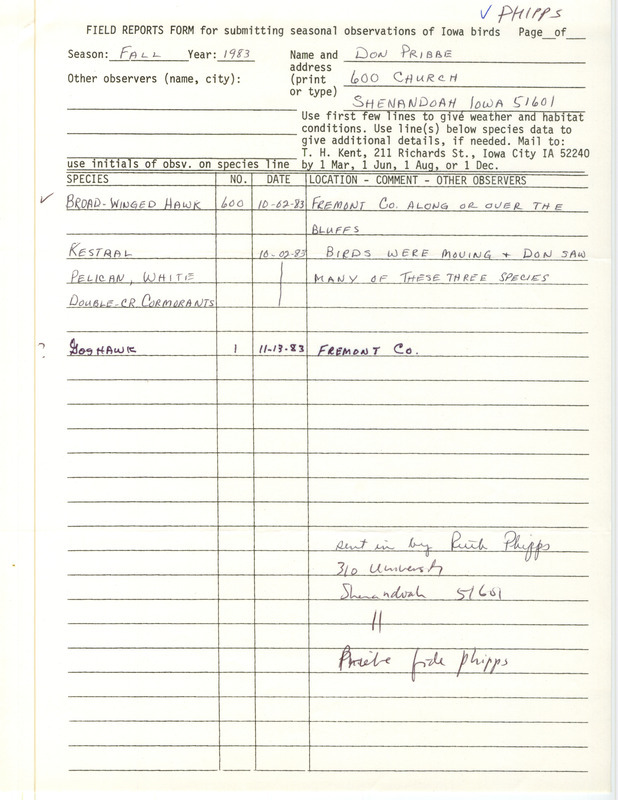 ✓ PHIPPS
FIELD REPORTS FORM for submitting seasonal observations of Iowa birds Page__of__
Season: FALL Year: 1983 Name and DON PRIBBE
address
Other observers (name, city): (print 600 CHURCH
or type)
SHENANDOAH IOWA 51601
Use first few lines to give weather and habitat
conditions. Use line(s) below species data to
give additional details, if needed. Mail to:
T. H. Kent, 211 Richards St., Iowa City IA 52240
use initials of obsv. on species line by 1 Mar, 1 Jun, 1 Aug, or 1 Dec.
SPECIES NO. DATE LOCATION - COMMENT - OTHER OBSERVERS
✓ BROAD-WINGED HAWK 600 10-02-83 FREMONT CO. ALONG OR OVER THE
BLUFFS
KESTRAL 10-02-83 BIRDS WERE MOVING + DON SAW
PELICAN, WHITE MANY OF THESE THREE SPECIES
DOUBLE-CR CORMORANTS
? GOSHAWK 1 11-13-83 FREMONT CO.
sent in by Ruth Phipps
310 University
Shenandoah 51601
//
fide Phipps